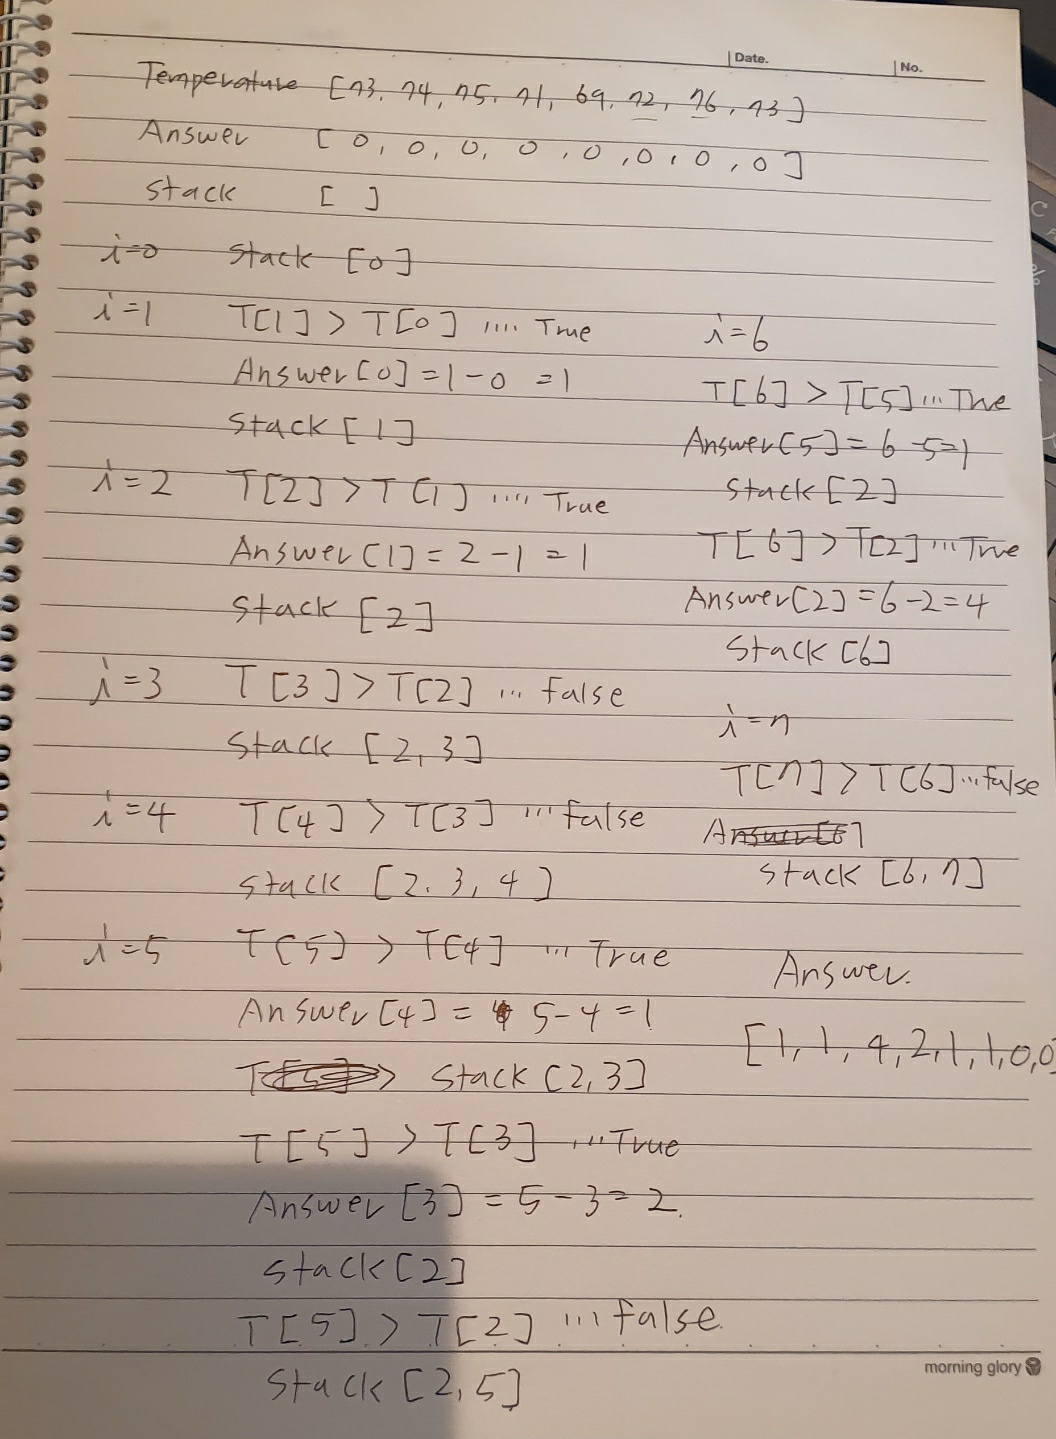 Date.
No.
Temperature [73, 74, 75, 71, 69, 72, 76, 73]
Answer [0, 0, 0, 0, 0, 0, 0, 0]
Stack [ ]
i=0 Stack [0]
i=1 T[1] > T[0] .... True
Answer[0] = 1-0 = 1
Stack [1]
i=2 T[2] > T[1] .... True
Answer[1] = 2-1 = 1
Stack [2]
i=3 T[3] > T[2] ... false
Stack [2, 3]
i=4 T[4] > T[3] ... false
Stack [2. 3, 4]
i=5 T[5] > T[4] ... True
Answer[4] = 5-4 = 1
Stack [2,3]
T[5] > T[3] ... True
Answer[3] = 5-3 = 2.
Stack [2]
T[5] > T[2] ... false.
Stack [2, 5]
i=6
T[6] > T[5] ... True
Answer[5] = 6-5=1
Stack [2]
T[6] > T[2] ... True
Answer[2] = 6-2=4
Stack [6]
i=7
T[7] > T[6] ... false
Stack [6, 7]
Answer.
[1, 1, 4, 2, 1, 1, 0, 0]
morning glory